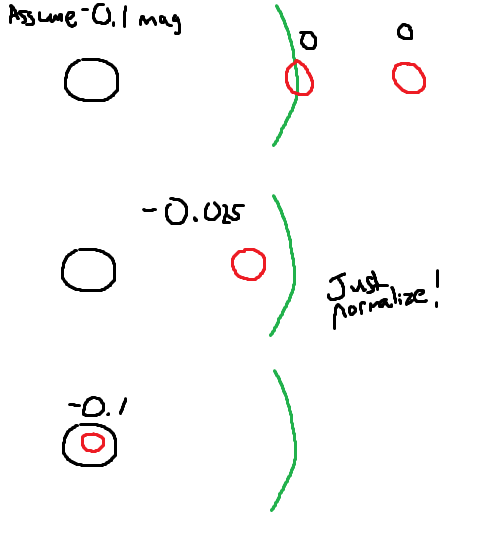 Assume -0.1 mag
0 0
-0.025
Just
normalize!
-0.1